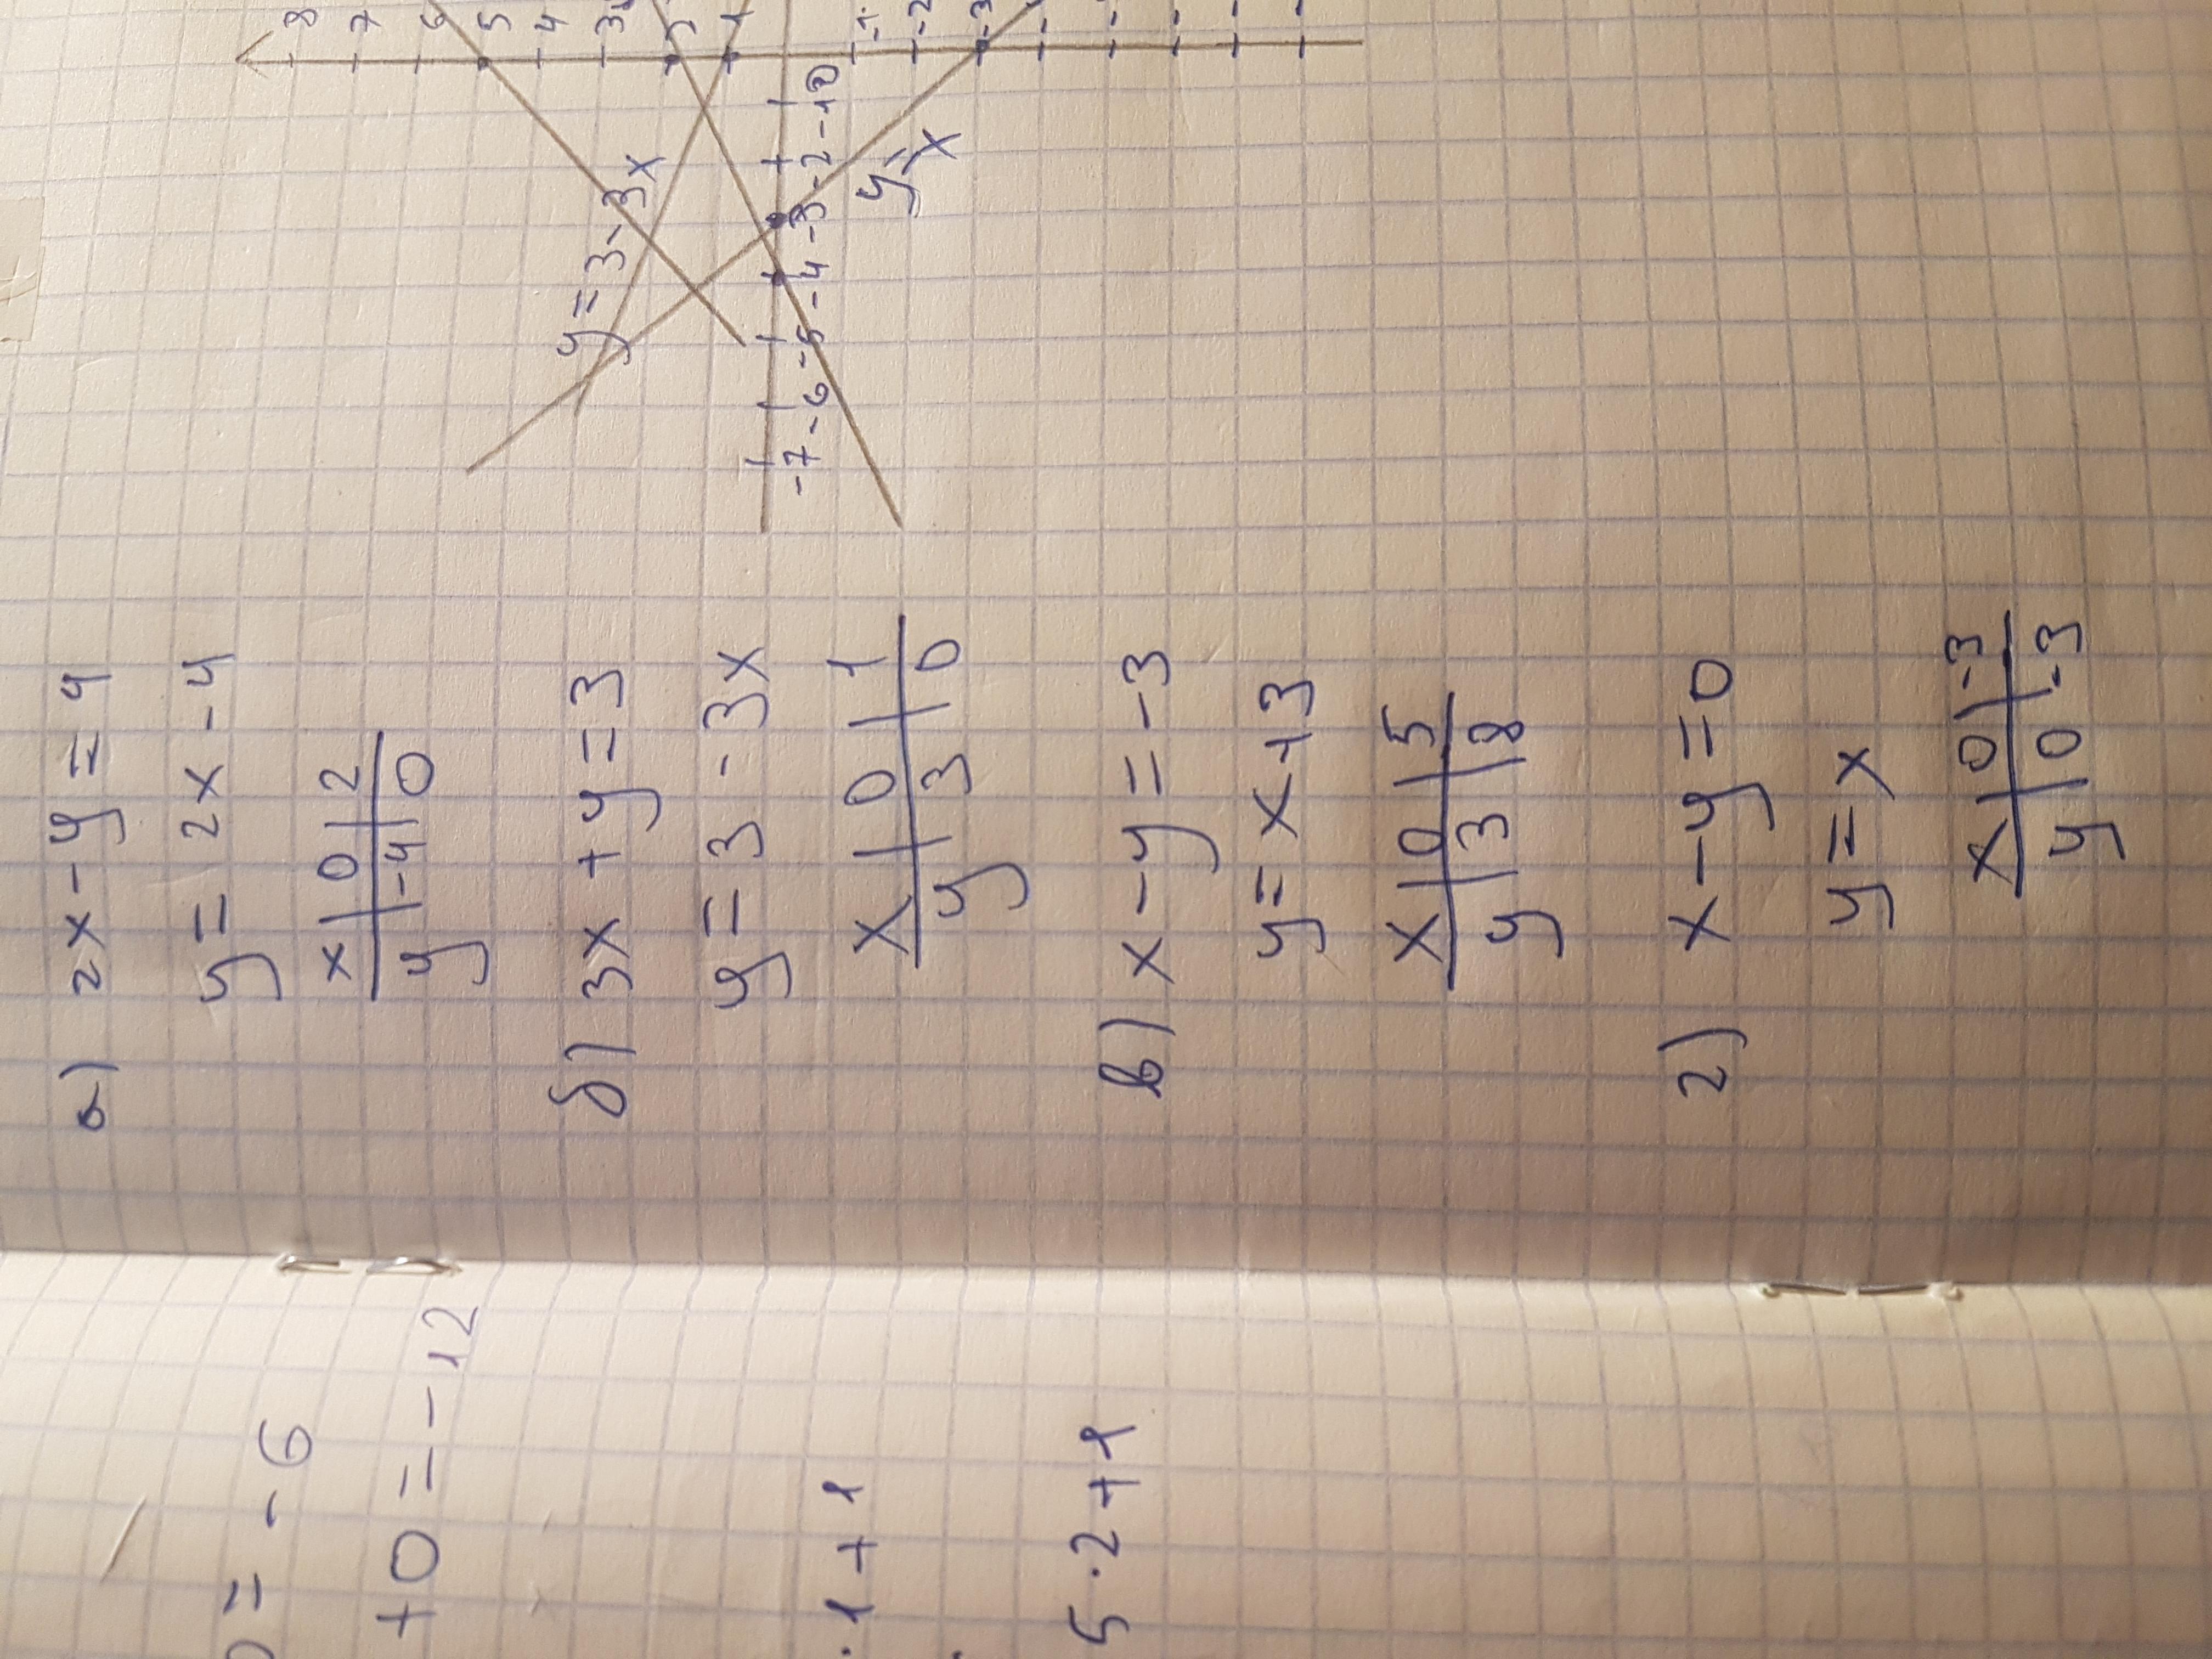 а) 2x - y = 4
y = 2x - 4
x | 0 | 2
y | -4 | 0
б) 3x + y = 3
y = 3 - 3x
x | 0 | 1
y | 3 | 0
в) x - y = -3
y = x + 3
x | 0 | 5
y | 3 | 8
г) x - y = 0
y = x
x | 0 | -3
y | 0 | -3
y = 3 - 3x
y = x
8
7
6
5
4
3
1
-7 -6 -5 -4 -3 -2 -1 0
-1
-2
-3
= -6
+ 0 = -12
· 1 + 1
5 · 2 + 1